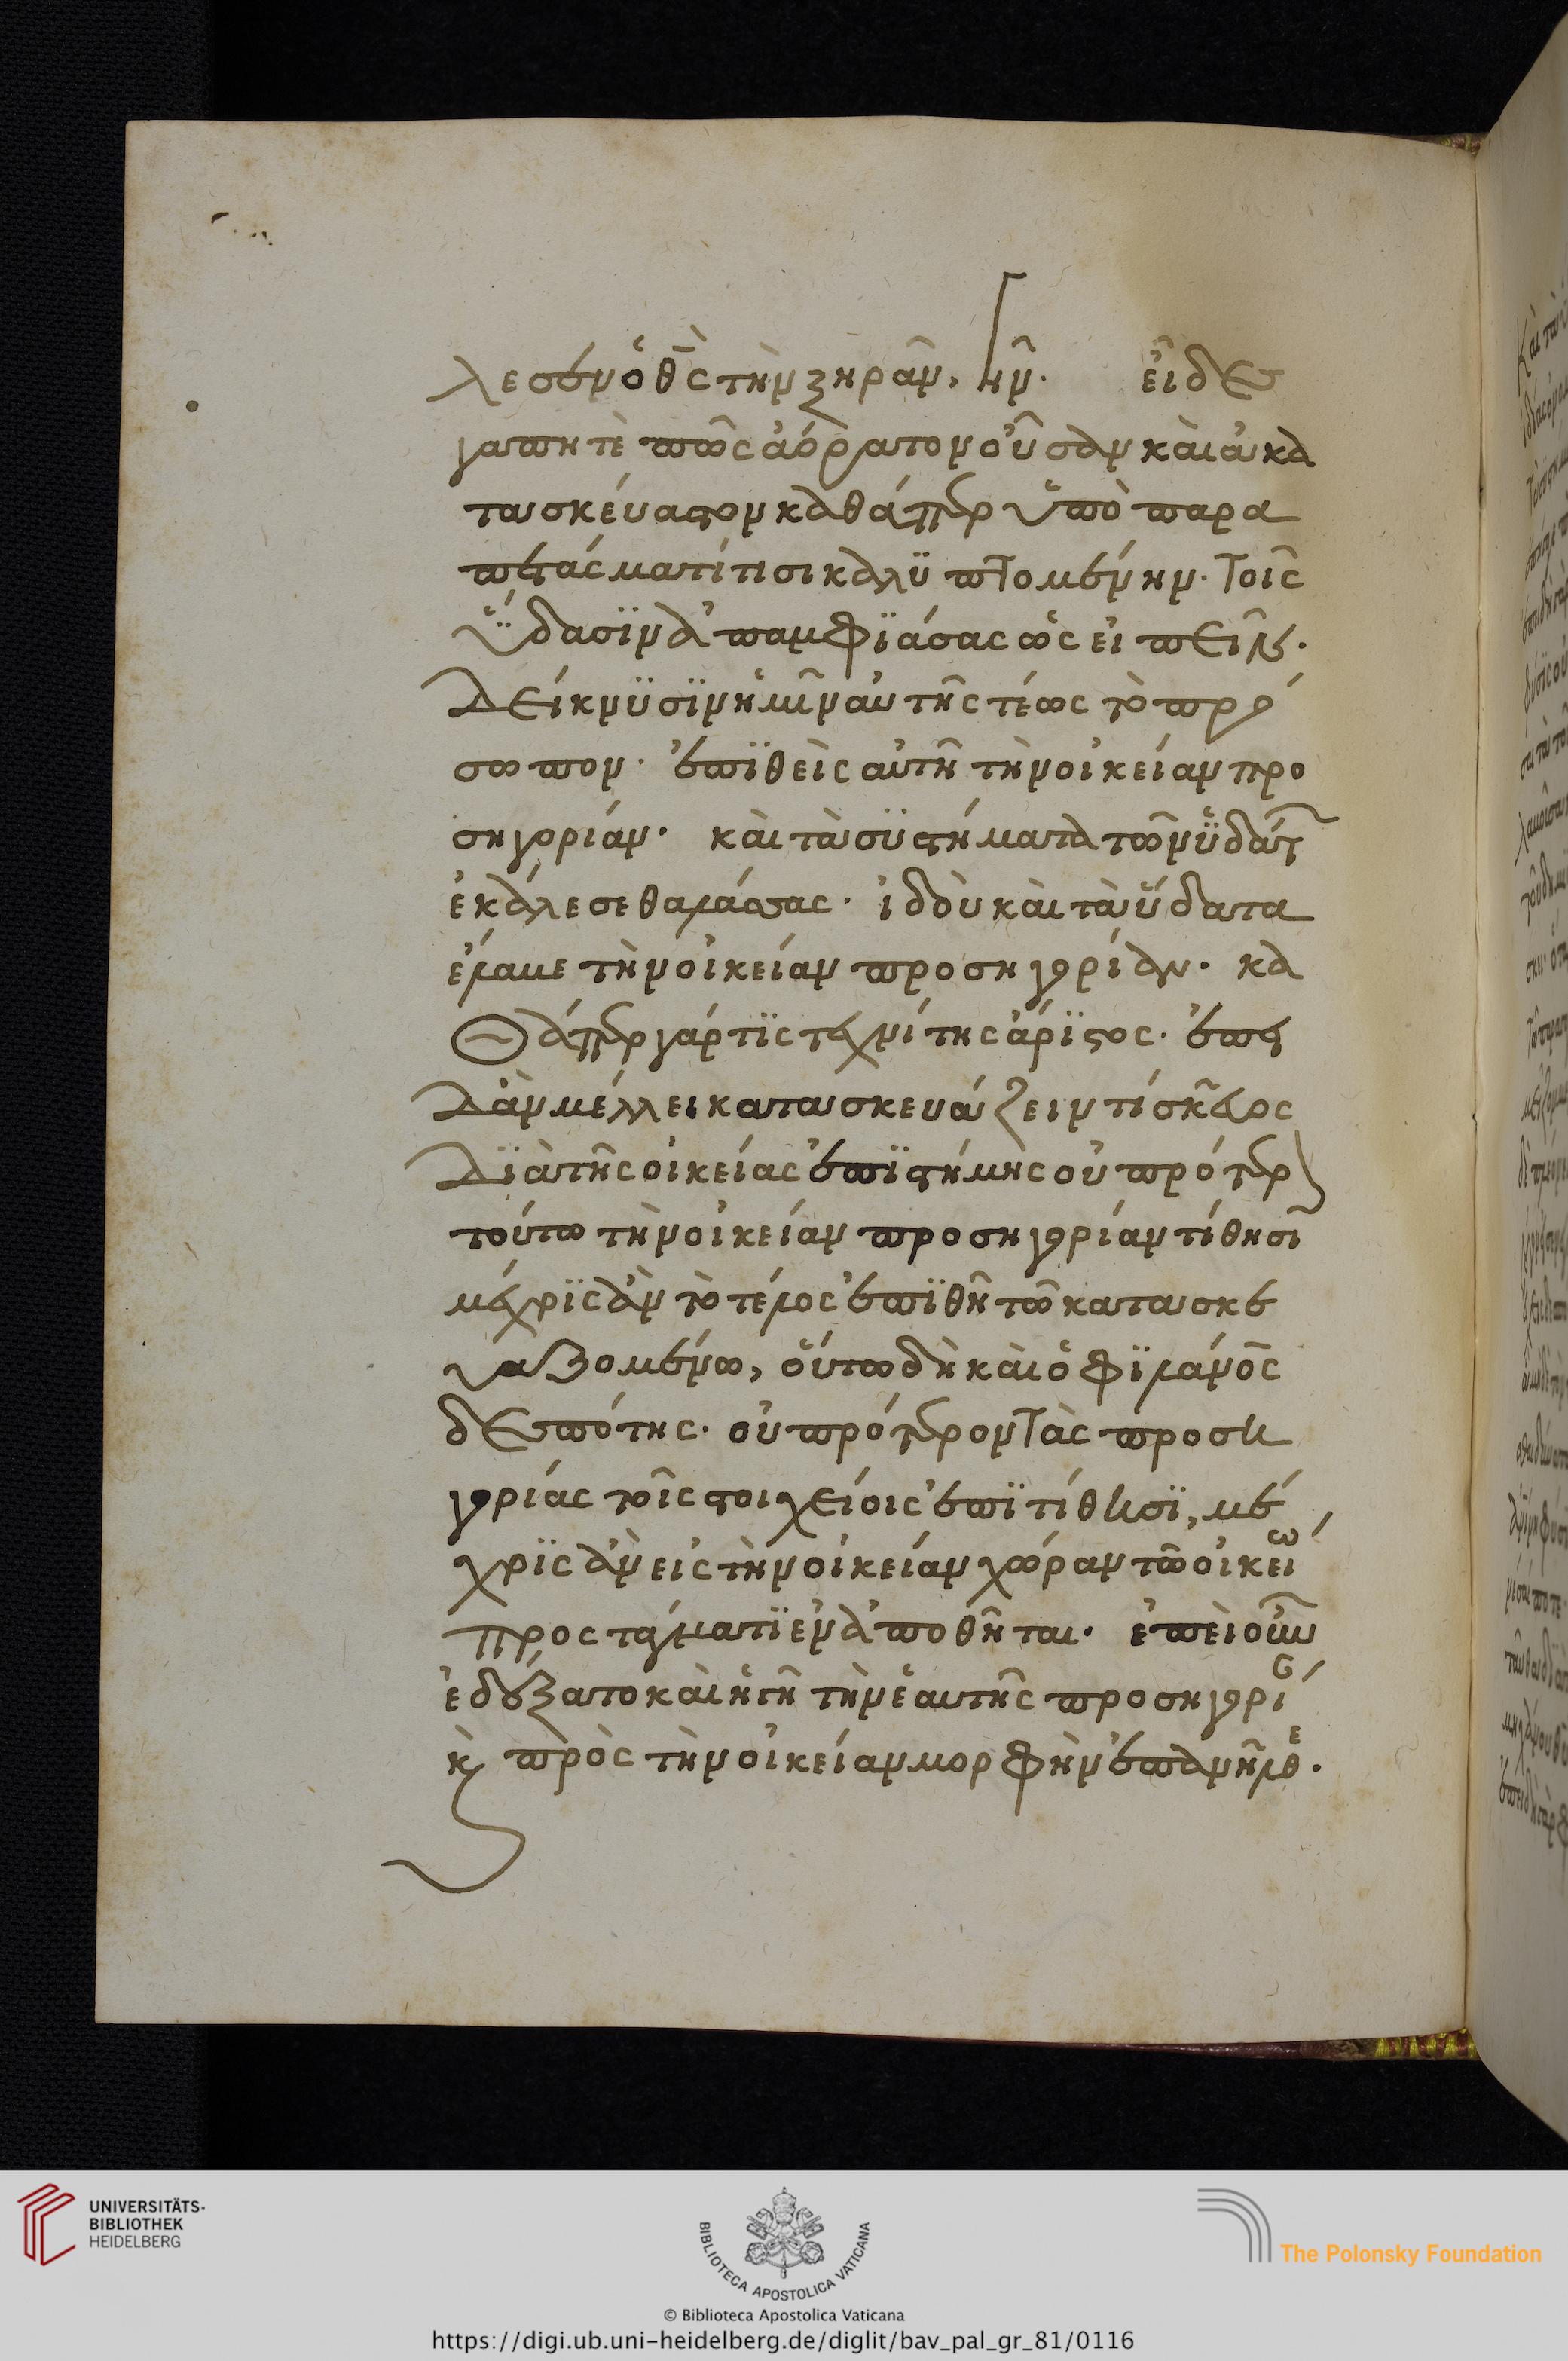 λεσεν ὁ θς τὴν ξηρὰν, γῆν. εἶδες ἀ
γαπητὲ πῶς ἀόρατον οὖσαν καὶ ἀκα
τασκέυαστον καθάπερ ὑπὸ παρα
πετάσματί τισι καλϋπτομένην. τοῖς
ὕδασϊν ἀπαμφϊάσας ὡς εἰπεῖν.
δείκνϋσϊν ἡμῖν αὐτῆς τέως τὸ πρό
σωπον. ἐπϊθεὶς αὐτῆ τὴν οἰκείαν προ
σηγορίαν. καὶ τὰ σϋστήματα τῶν ὑδάτ
ἐκάλεσε θαλάσσας. ἰδοὺ καὶ τὰ ὕδατα
ἔλαβε τὴν οἰκείαν προσηγορίαν. κα
θάπερ γάρ τϊς τεχνίτης ἄρϊστος. ἐπει
δὰν μέλλει κατασκευάζειν τί σκεῦος
δϊὰ τῆς οἰκείας ἐπϊστήμης οὐ πρότερ
τούτω τὴν οἰκείαν προσηγορίαν τίθησϊ
μέχρϊς ἂν τὸ τέλος ἐπϊθῆ τῶ κατασκε
υαζομένω, οὕτω δὴ καὶ ὁ φϊλανος
δεσπότης. οὐ πρότερον τὰς προση
γορίας τοῖς στοιχείοις ἐπϊτίθησϊ, μέ
χρϊς ἂν εἰς τὴν οἰκείαν χώραν τῶ οἰκείω
προστάγματϊ ἐναποθῆται. ἐπεὶ οὖν
ἐδέξατο καὶ ἡ γῆ τὴν ἑαυτῆς προσηγορί
κ πρὸς τὴν οἰκείαν μορφὴν ἐπανῆλθε.
UNIVERSITÄTS-
BIBLIOTHEK
HEIDELBERG
BIBLIOTECA APOSTOLICA VATICANA
The Polonsky Foundation
© Biblioteca Apostolica Vaticana
https://digi.ub.uni-heidelberg.de/diglit/bav_pal_gr_81/0116